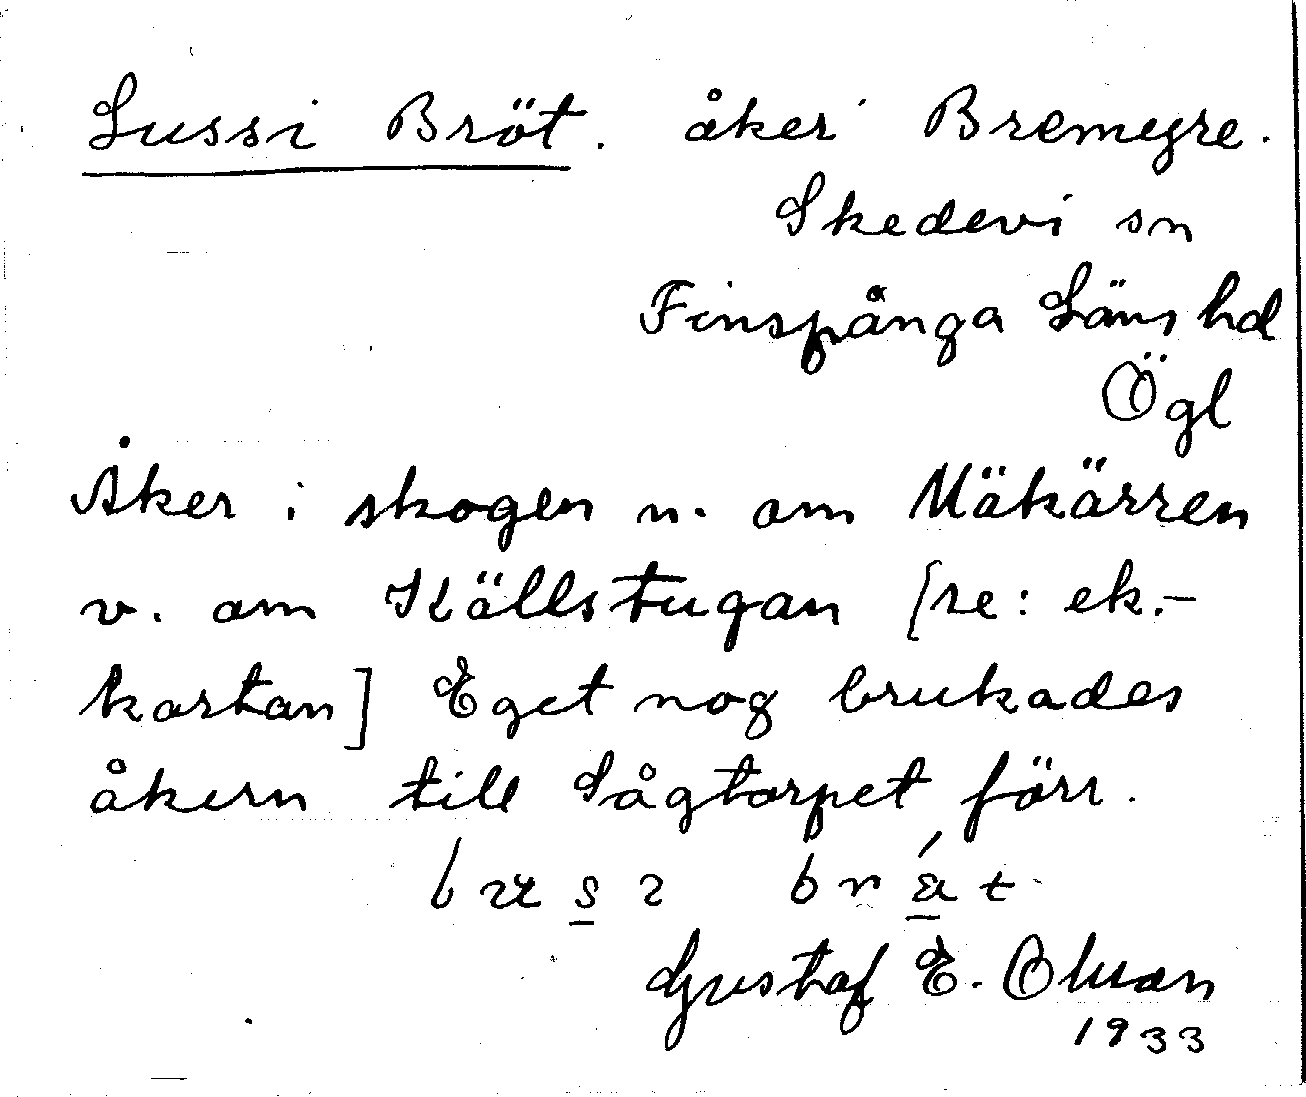 Lussi Bröt. åker Bremyre.
Skedevi sn
Finspånga Läns hd
Ögl
Åker i skogen n. om Mäkärren
v. om Källstugan [se: ek.-
kartan] Eget nog brukades
åkern till Sågtorpet förr.
Gustaf E. Olsson
1933